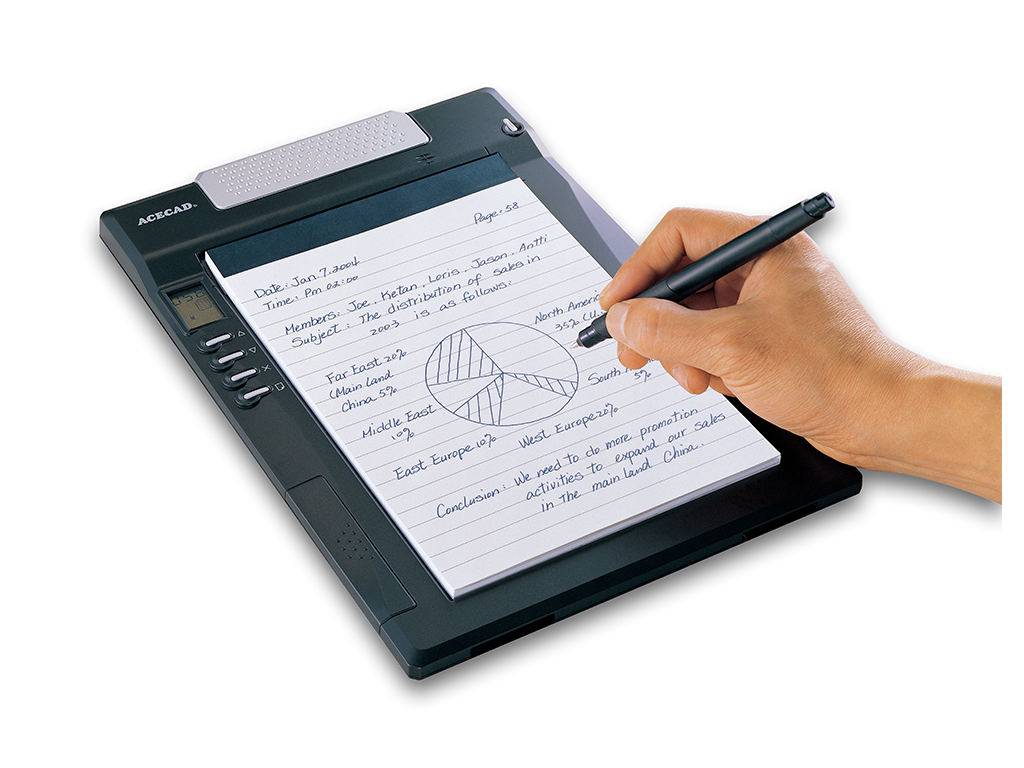 ACECAD
Page. 58
Date: Jan. 7. 2004
Time: Pm 02:00
Members: Joe, Ketan, Loris, Jason, Antti
Subject: The distribution of sales in
2003 is as follows:
North America
35%
Far East 20%
(Main land
China 5%
South
5%
Middle East
10%
East Europe 10%
West Europe 20%
Conclusion: We need to do more promotion
activities to expand our sales
in the main land China.